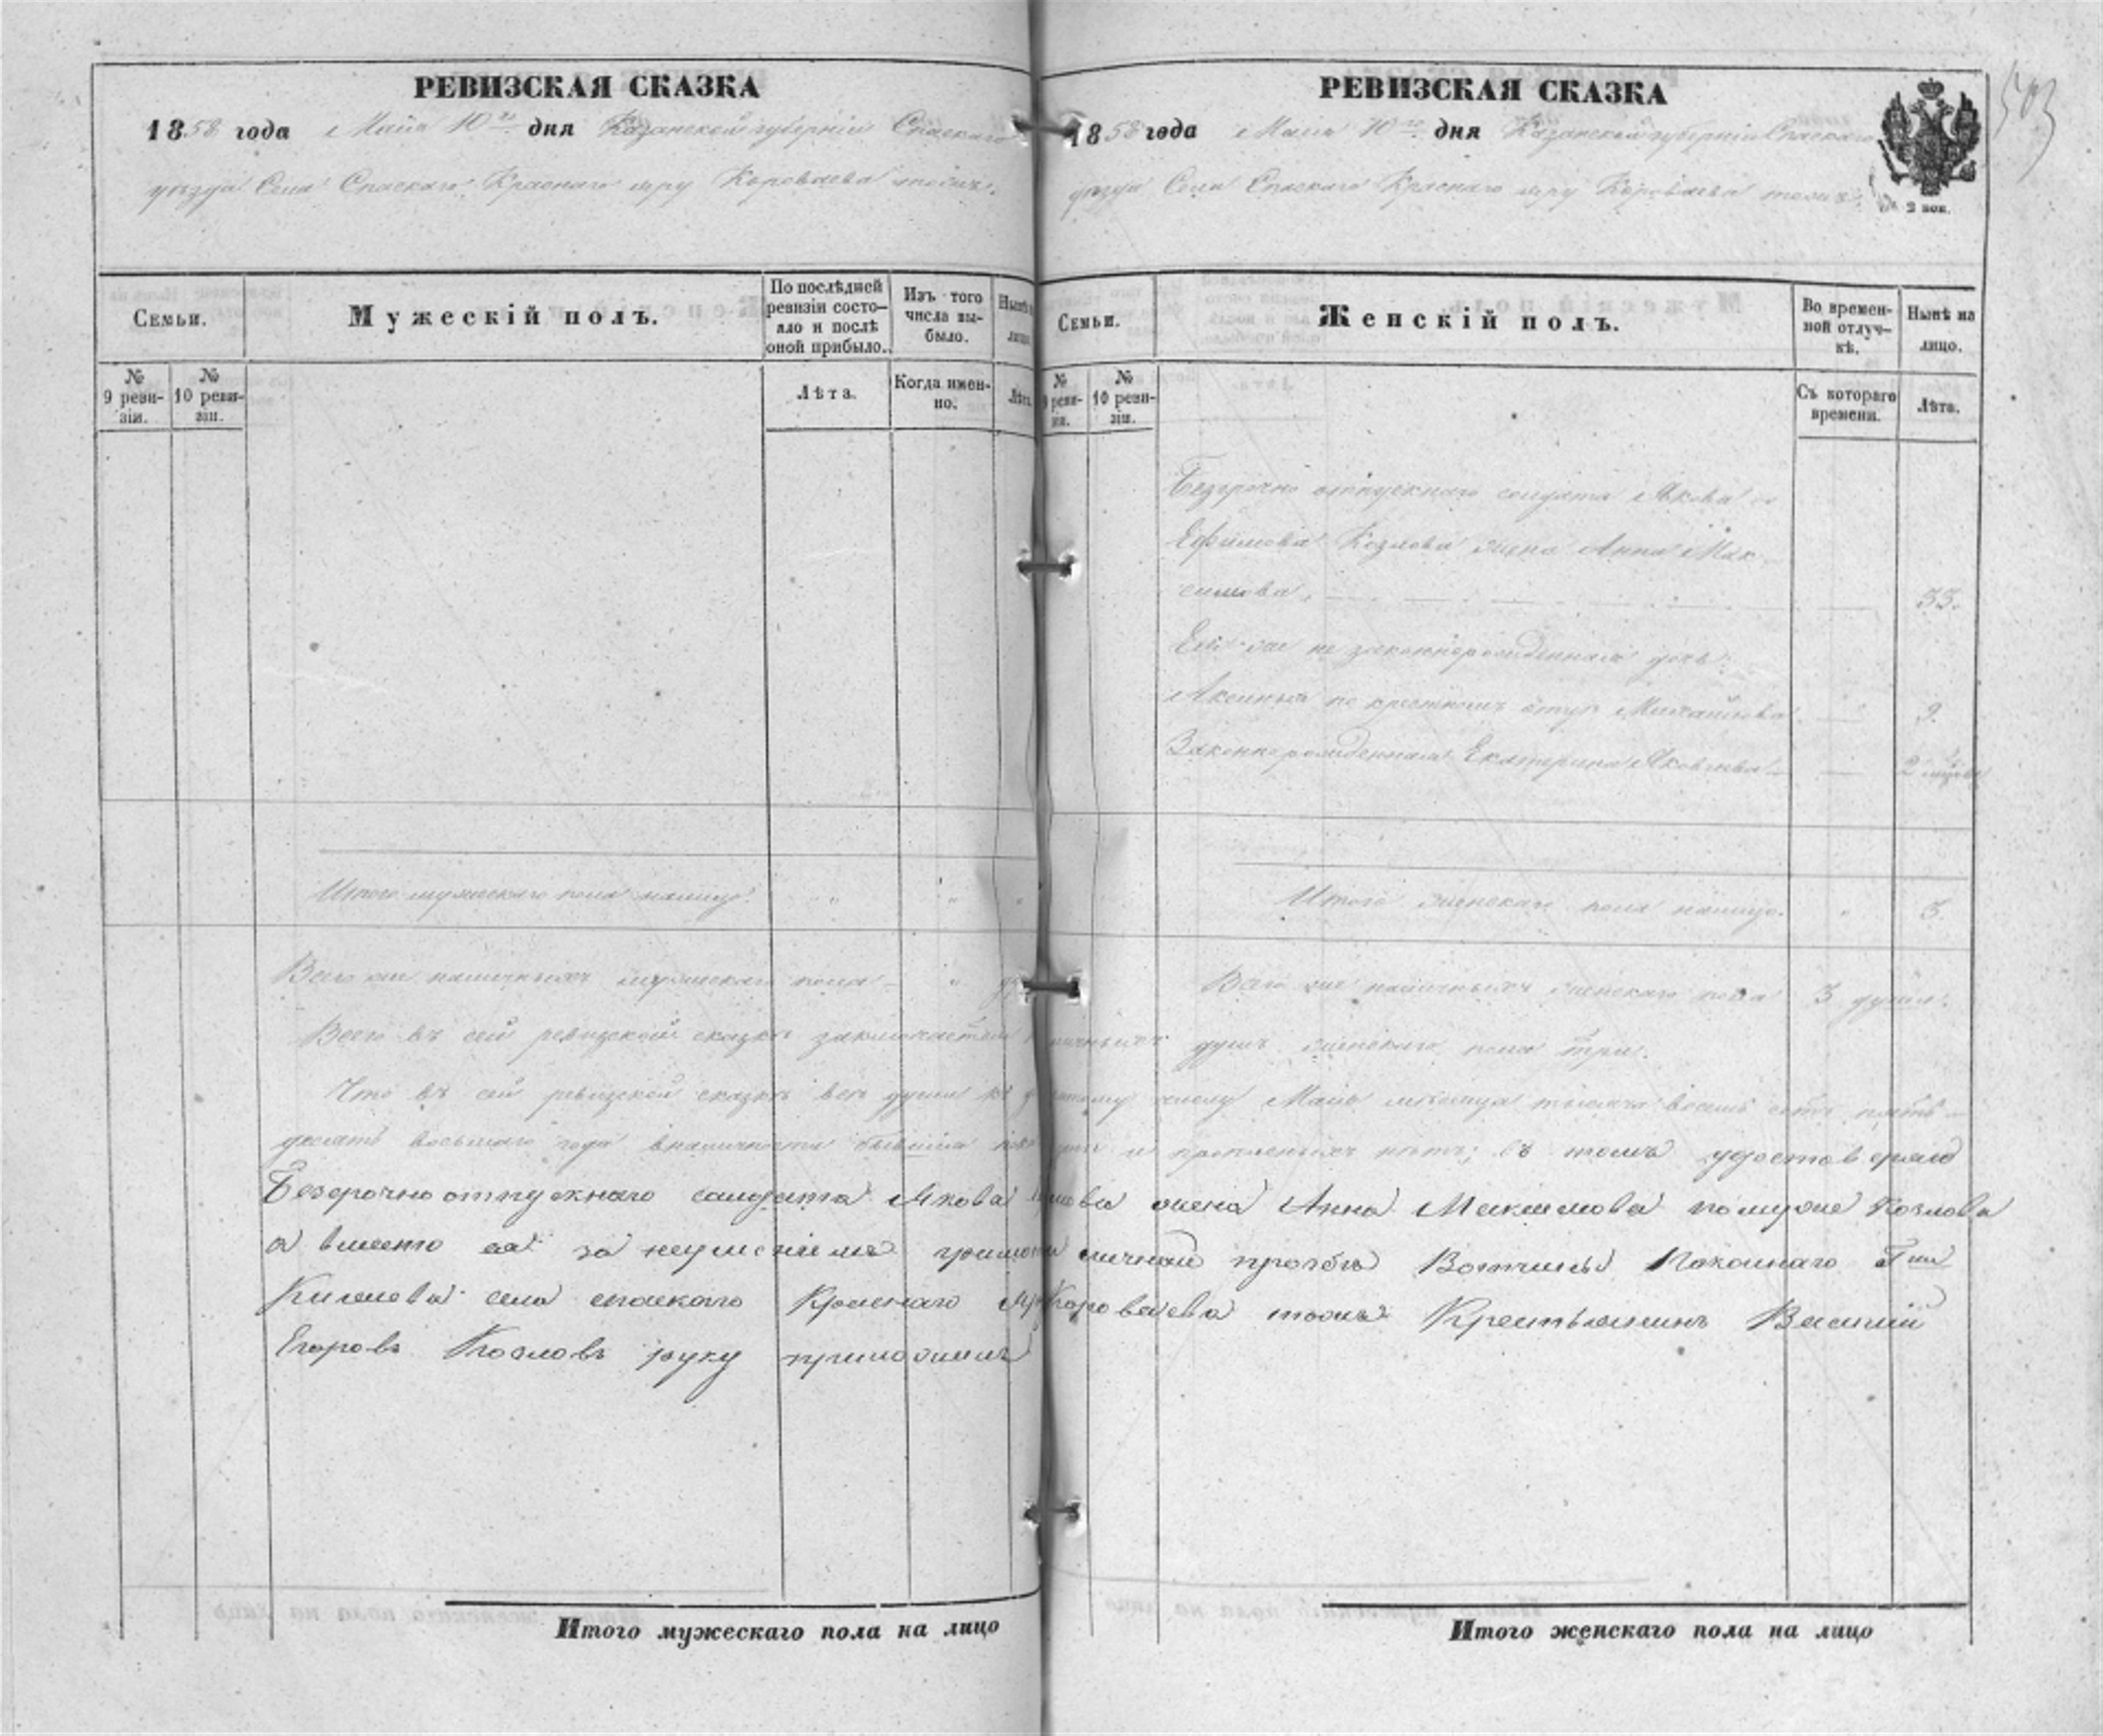 РЕВИЗСКАЯ СКАЗКА
1858 года Мая 10го дня Казанской губернiи Спаскаго
уѣзда Села Спаскаго, Краснаго яру Короваева тожъ.
Семьи.
Мужескiй полъ.
По послѣдней ревизiи состояло и послѣ оной прибыло.
Изъ того числа выбыло.
Нынѣ
лицо
№ 9 ревизiи.
№ 10 ревизiи.
Лѣта.
Когда именно.
Лѣта.
Итого мужескаго пола налицо.
Всего же наличныхъ мужескаго пола
РЕВИЗСКАЯ СКАЗКА
1858 года Мая 10го дня Казанской губернiи Спаскаго
уѣзда Села Спаскаго Краснаго яру Короваева тожъ.
2 коп.
503
Семьи.
Женскiй полъ.
Во временной отлучкѣ.
Нынѣ на лицо.
№ 9 ревизiи.
№ 10 ревизiи.
Съ котораго времени.
Лѣта.
Безсрочно отпускнаго солдата Якова
Ефимова Козлова жена Анна Мак
симова 33.
Ея же не законнорожденная дочь
Аксинья по крестному отцу Михайлова 9.
Законнорожденная Екатерина Яковлева 2
Итого женскаго пола налицо. 3.
Всего же наличныхъ женскаго пола 3 души.
Всего въ сей ревизской сказкѣ заключается наличныхъ душъ женскаго пола три.
Что въ сей ревизской сказкѣ всѣ души къ десятому числу Маiя мѣсяца тысяча восемь сотъ пять
десятъ восьмаго года въ наличности бывшiя показаны и прописныхъ нѣтъ; въ томъ удостоверяю
Безсрочно отпускнаго салдата Якова Ефимова жена Анна Максимова по муже Козлова
а вместо ея за неумениемъ грамоте личной прозбѣ Вотчины Покойнаго
села спаскаго Краснаго Яру Короваева тожъ Крестьянинъ Василий
Егоровъ Козловъ руку приложилъ
Итого мужескаго пола на лицо
Итого женскаго пола на лицо